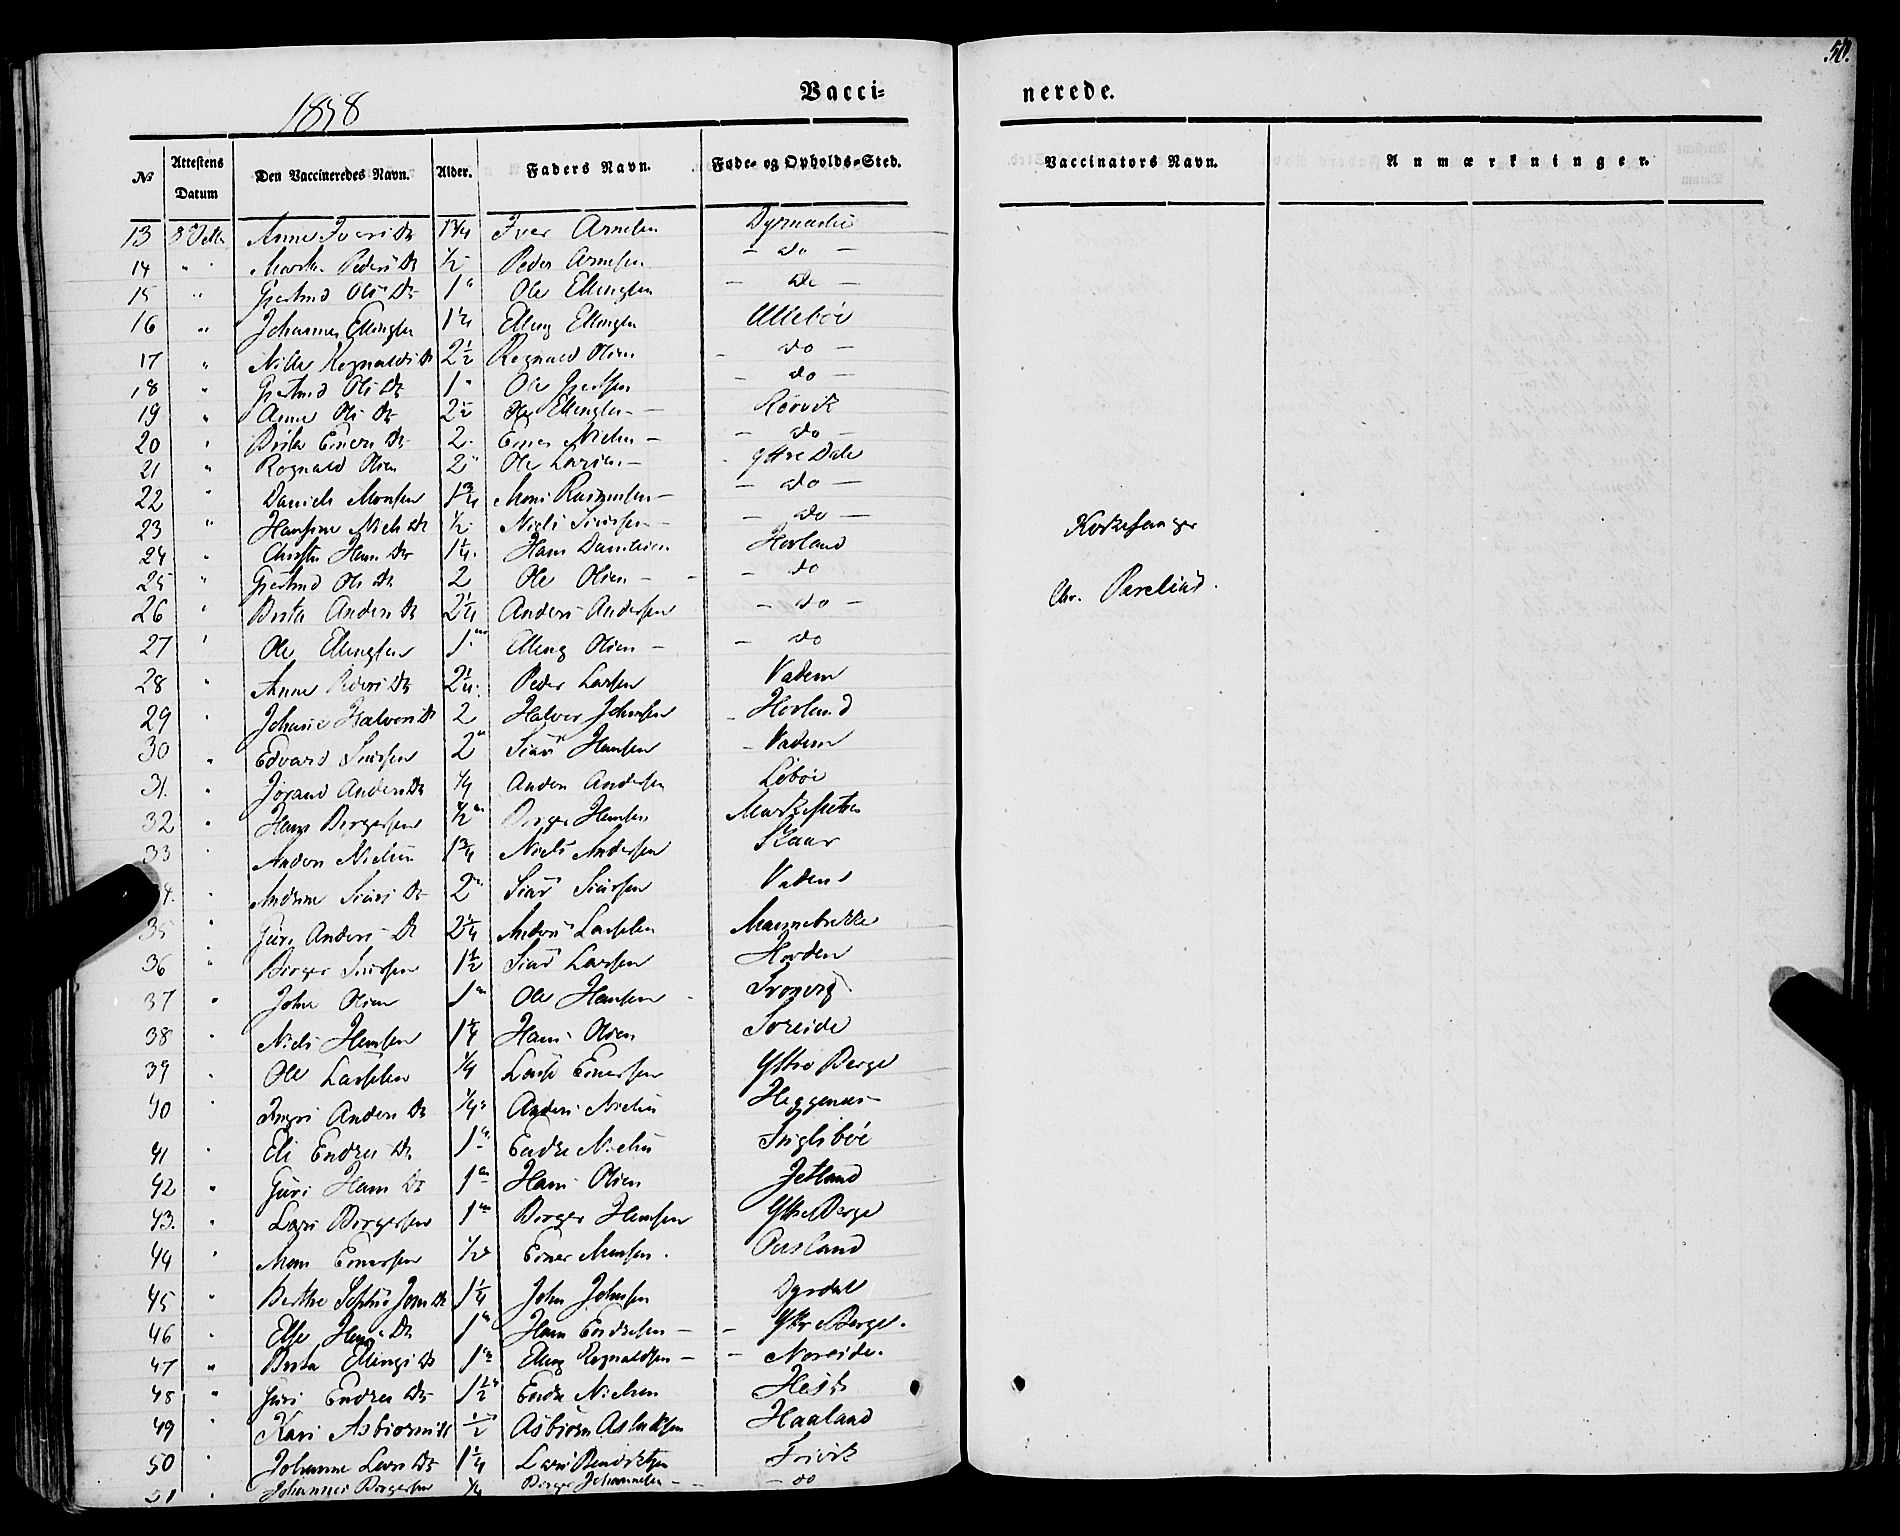 50.
1858
Vacci-
nerede.
No
Attestens Datum
Den Vaccineredes Navn.
Alder.
Faders Navn.
Føde- og Opholds-Sted.
Vaccinators Navn.
Anmærkninger.
13 8 Anne Ivers Dr 1 3/4 Iver Arnesen
14 " " Peders Dr 1/2 Peder Arnesen - do -
15 " Gjertrud Ols Dr 1 " Ole Ellingsen - do -
16 " Johannes Ellingsen 1 1/4 Elling Ellingsen Ullebøe
17 " Rognalds Dr 2 1/2 Rognald Olsen - do -
18 " Gjertrud Ols Dr 1 " Ole - do -
19 " Anne Ols Dr 2 1/2 Ole Ellingsen - Rørvik
20 " Brita Einers Dr 2 Einer Nielsen - - do -
21 " Rognald Olsen 2 " Ole Larsen - Yttre Dale
22 " Daniel Monsen 1 3/4 Mons Rasmussen - - do -
23 " Hansine Niels Dr 1/2 Niels Siursen - - do -
24 " Hans Dr 1 1/4 Hans Danielsen Hovland
25 " Gjertrud Ols Dr 2 Ole Olsen - - do
26 " Brita Anders Dr 2 1/4 Anders Andersen - do -
27 " Ole Ellingsen 1 " Elling Olsen - - do
28 " Anne Peders Dr 2 1/4 Peder Larsen Vadem
29 " Halvors Dr 2 Halvor Johnsen - Hovland
30 " Edvard Siursen 2 " Siur Hansen - Vadem
31. " Jorand Anders Dr 1/4 Anders Andersen Lebøe
32 " Hans Birgersen 1/2 " Birger Hansen
33 " Anders Nielsen 1 3/4 Niels Andersen Skaar
34. " Siurs Dr 2 " Siur Siursen Vadem
35 " Guri Anders Dr 2 1/4 Anders Lassesen Mannebrekke
36 " Birger Siursen 1 1/2 Siur Larsen Horden
37 " John Olsen 1 " Ole Hansen
38 " Niels Hansen 1 1/4 Hans Olsen Søreide
39 " Ole Lassesen 1/4 Lasse Einersen Yttre Berge
40 " Ingri Anders Dr 1/4 " Anders Nielsen Heggenæs
41 " Eli Endres Dr 1 " Endre Nielsen
42 " Guri Hans Dr 1 " Hans Olsen Jetland
43. " Lars Birgersen 1 " Birger Hansen Yttre Berge
44 " Mons Einersen 1/2 Einer Monsen. Ousland
45 " Berthe Sophie Johns Dr 1 1/4 John Johnsen Dyrdal
46 " Else Hans Dr 1 " Hans Endresen - - Yttre Berge.
47 " Brita Ellings Dr 1 " Elling Rognaldsen - - Noreide.
48 " Guri Endres Dr 1 1/2 Endre Nielsen
49 " Kari Asbiørns Dr 1/2 Asbiørn Aslaksen Haaland
50 " Johanne Lars Dr 1 1/4 Lars Bendiktsen
51 " Johannes Birgersen 1/4 Birger Johannesen - - do
Kirkesanger
Chr.